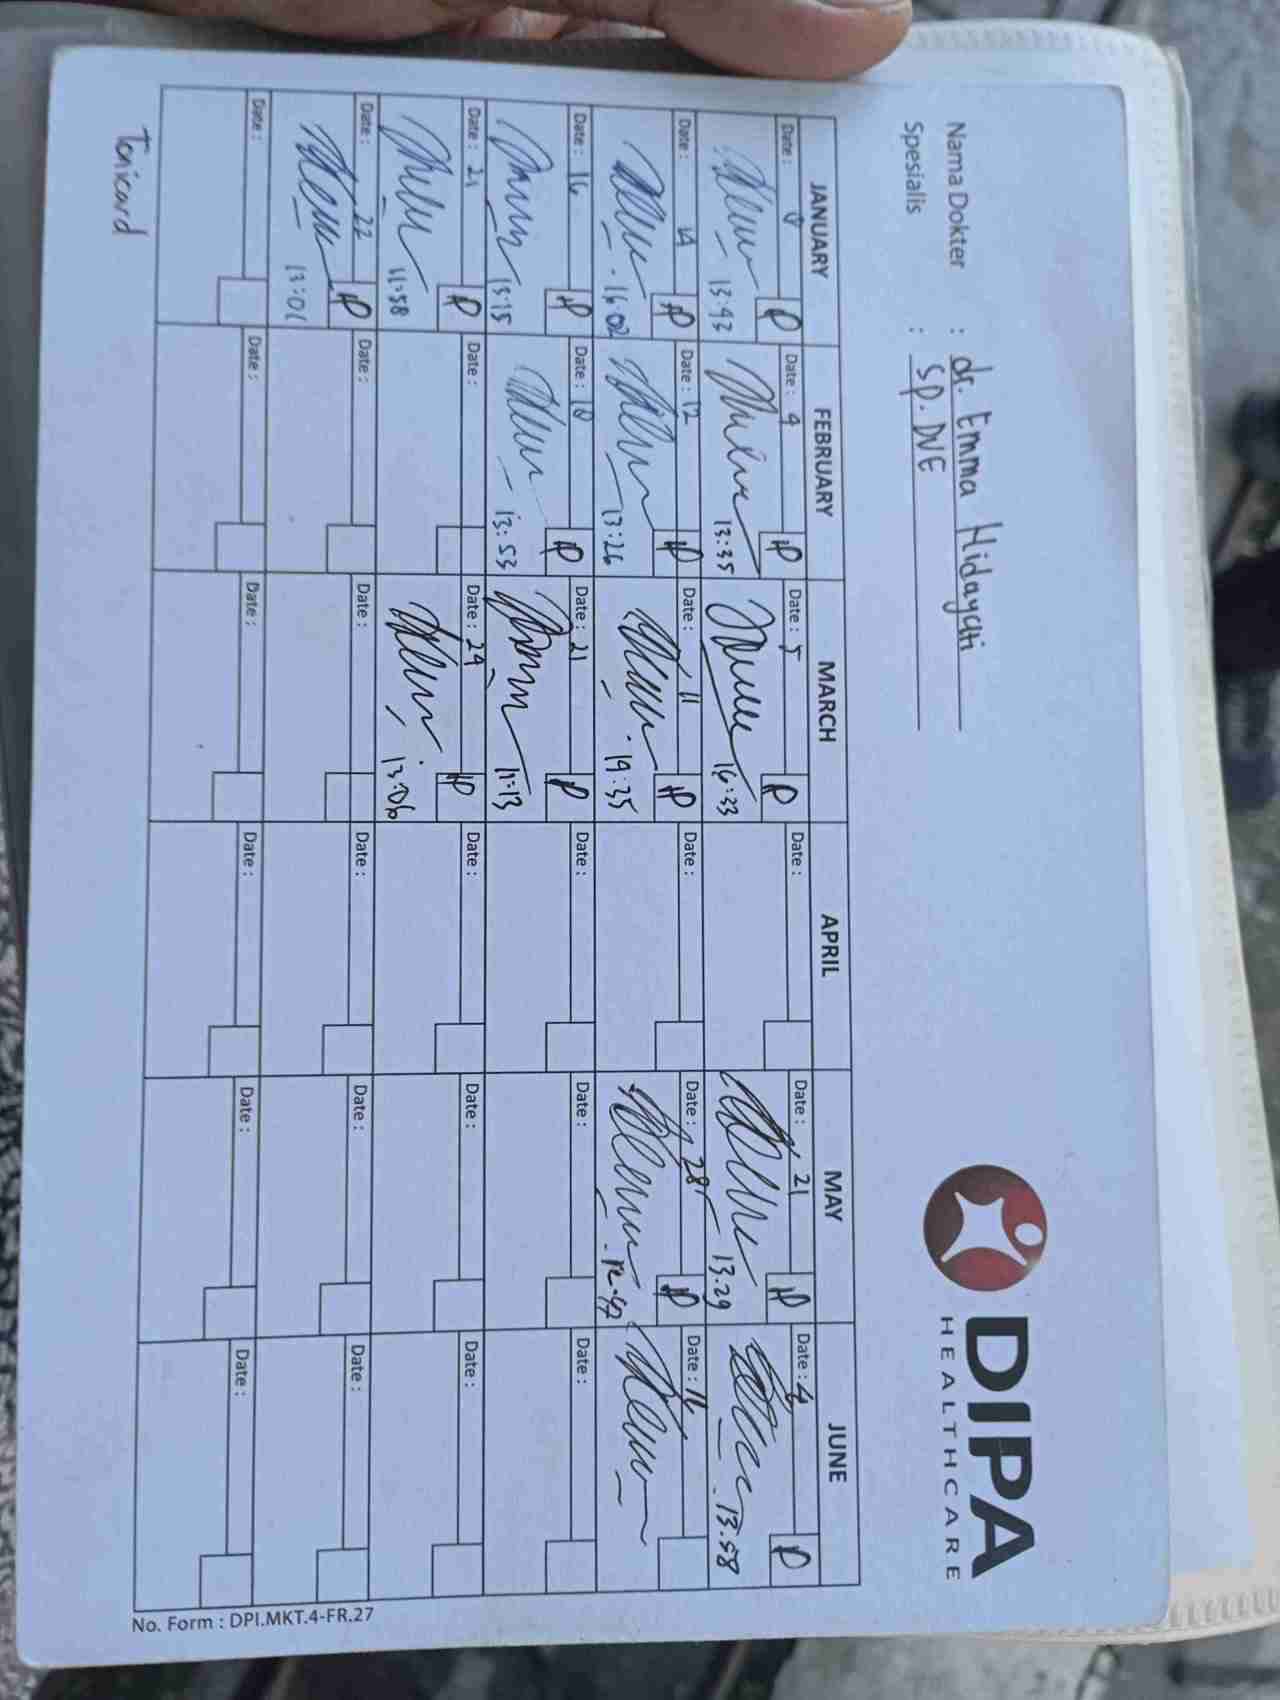 Nama Dokter : dr. Emma Hidayati
Spesialis : Sp. DVE
DIPA
HEALTHCARE
JANUARY FEBRUARY MARCH APRIL MAY JUNE
Date : 8 Date : 4 Date : 5 Date : Date : 21 Date : 4
13:43 13:35 16:33 13:29 13:58
Date : 14 Date : 12 Date : 11 Date : Date : 28 Date : 16
16:02 13:26 19:35
Date : 16 Date : 18 Date : 21 Date : Date : Date :
13:15 13:53 11:13
Date : 21 Date : Date : 24 Date : Date : Date :
11:58 13:06
Date : 22 Date : Date : Date : Date : Date :
13:01
Date : Date : Date : Date : Date : Date :
Tonicard
No. Form : DPI.MKT.4-FR.27